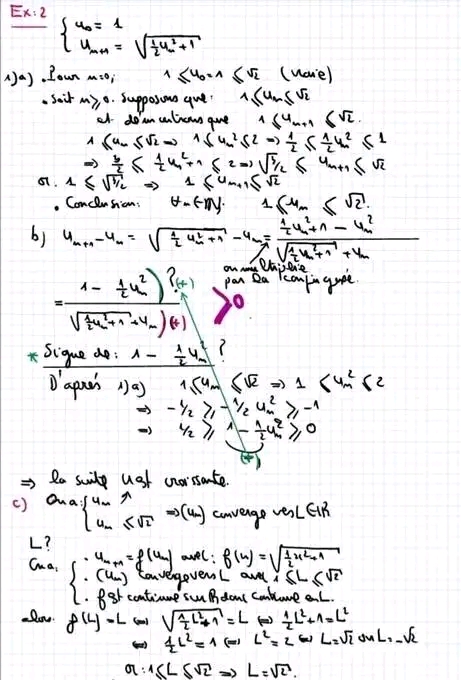 Ex: 2
{ u₀ = 1
{ uₙ₊₁ = √(½uₙ²+1)
1)a) . Pour n=0; 1 ≤ u₀ = 1 ≤ √2 (vraie)
. Soit n ≥ 0. Supposons que: 1 ≤ uₙ ≤ √2
et démontrons que 1 ≤ uₙ₊₁ ≤ √2.
1 ≤ uₙ ≤ √2 ⇒ 1 ≤ uₙ² ≤ 2 ⇒ ½ ≤ ½uₙ² ≤ 1
⇒ 3/2 ≤ ½uₙ²+1 ≤ 2 ⇒ √(3/2) ≤ uₙ₊₁ ≤ √2
or. 1 ≤ √(3/2) ⇒ 1 ≤ uₙ₊₁ ≤ √2
. Conclusion: ∀n∈ℕ. 1 ≤ uₙ ≤ √2.
b) uₙ₊₁ - uₙ = √(½uₙ²+1) - uₙ = (½uₙ²+1 - uₙ²) / (√(½uₙ²+1) + uₙ)
on multiplie
par la conjuguée.
= (1 - ½uₙ²) / (√(½uₙ²+1) + uₙ) ? (+) (+) >0
* Signe de: 1 - ½uₙ² ?
D'aprés 1)a) 1 ≤ uₙ ≤ √2 ⇒ 1 ≤ uₙ² ≤ 2
⇒ -½ ≥ -½uₙ² ≥ -1
⇒ ½ ≥ 1 - ½uₙ² ≥ 0
(+)
⇒ la suite U est croissante.
c) Ona: { uₙ ↗
{ uₙ ≤ √2 ⇒ (uₙ) converge vers L∈ℝ
L?
Ona: { . uₙ₊₁ = f(uₙ) avec: f(x) = √(½x²+1)
{ . (uₙ) converge vers L avec 1 ≤ L ≤ √2
{ . f est continue sur ℝ donc continue en L.
alors f(L) = L ⇔ √(½L²+1) = L ⇔ ½L²+1 = L²
⇔ ½L² = 1 ⇔ L² = 2 ⇔ L = √2 ou L = -√2
or: 1 ≤ L ≤ √2 ⇒ L = √2.